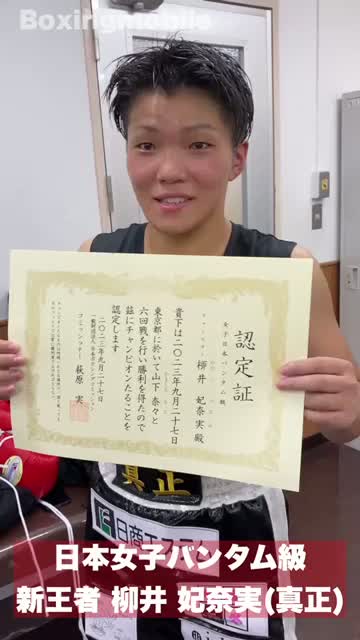 Boxingmobile
認定証
女子日本バンタム級
チャンピオン
柳井 妃奈実 殿
貴下は二〇二三年九月二十七日
東京都に於いて山下 奈々と
六回戦を行い勝利を得たので
茲にチャンピオンたることを
認定します
二〇二三年九月二十七日
一般財団法人 日本ボクシングコミッション
コミッショナー 萩原 実
真正
日商エステム
日本女子バンタム級
新王者 柳井 妃奈実(真正)